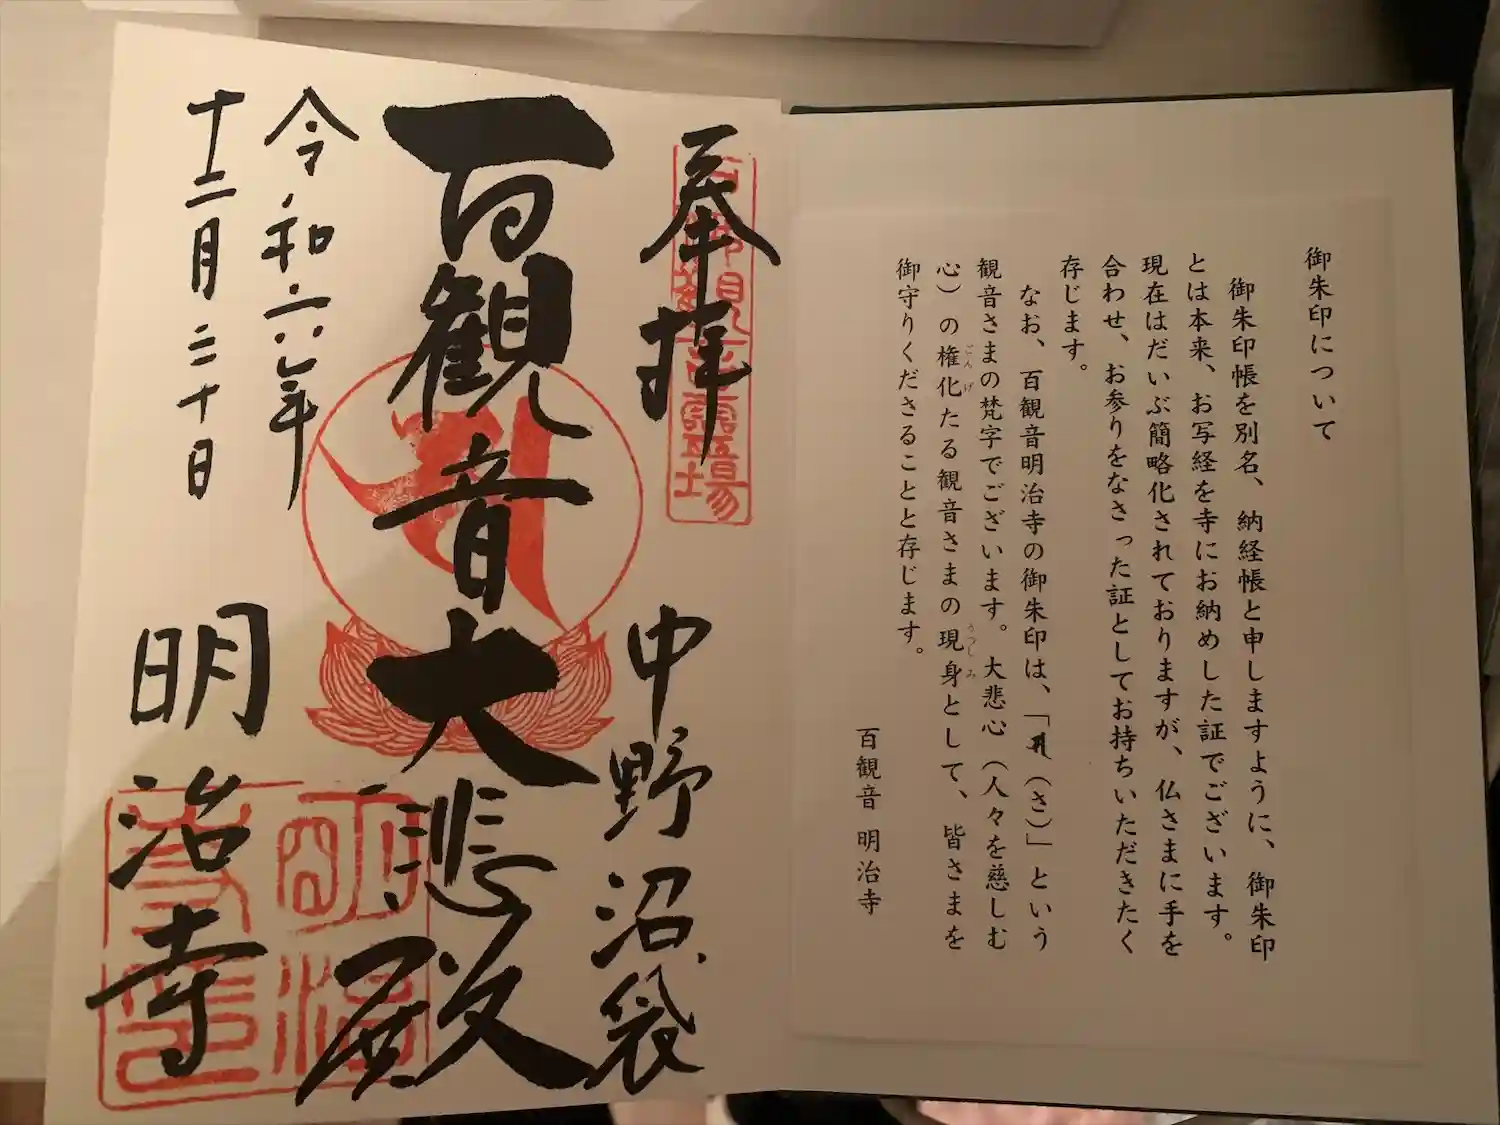 御朱印について
御朱印帳を別名、納経帳と申しますように、御朱印
とは本来、お写経を寺にお納めした証でございます。
現在はだいぶ簡略化されておりますが、仏さまに手を
合わせ、お参りをなさった証としてお持ちいただきたく
存じます。
なお、百観音明治寺の御朱印は、「（さ）」という
観音さまの梵字でございます。大悲心（人々を慈しむ
心）の権化たる観音さまの現身として、皆さまを
ごんげ
うつしみ
御守りくださることと存じます。
百観音 明治寺
奉拝
中野沼袋
百観音大悲殿
令和六年
十二月二十日
明治寺
霊場